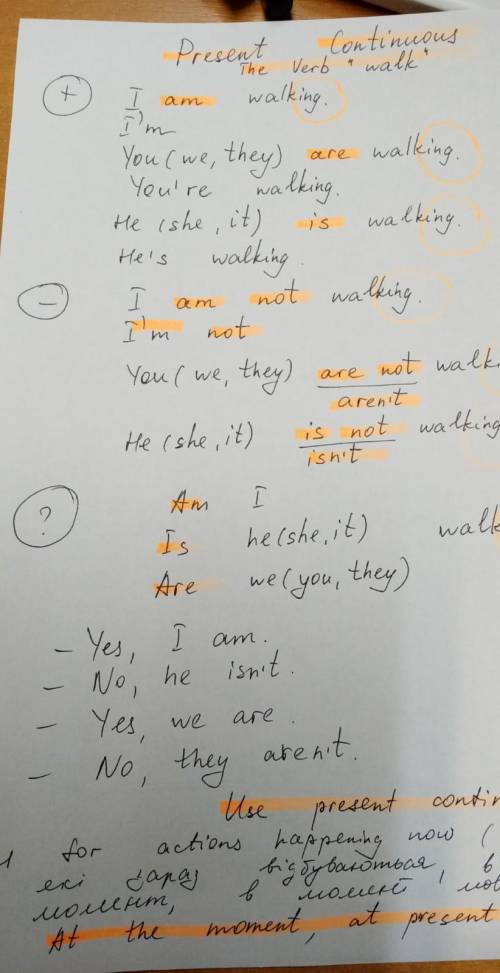 Present Continuous
The Verb "walk"
+ I am walking.
I'm
You (we, they) are walking.
You're walking.
He (she, it) is walking.
He's walking.
− I am not walking.
I'm not
You (we, they) are not walk
aren't
He (she, it) is not walking
isn't
Am I
? Is he (she, it) walk
Are we (you, they)
– Yes, I am.
– No, he isn't.
– Yes, we are.
– No, they aren't.
Use present contin
for actions happening now (
які зараз відбуваються, в
момент, в момент мов
At the moment, at present